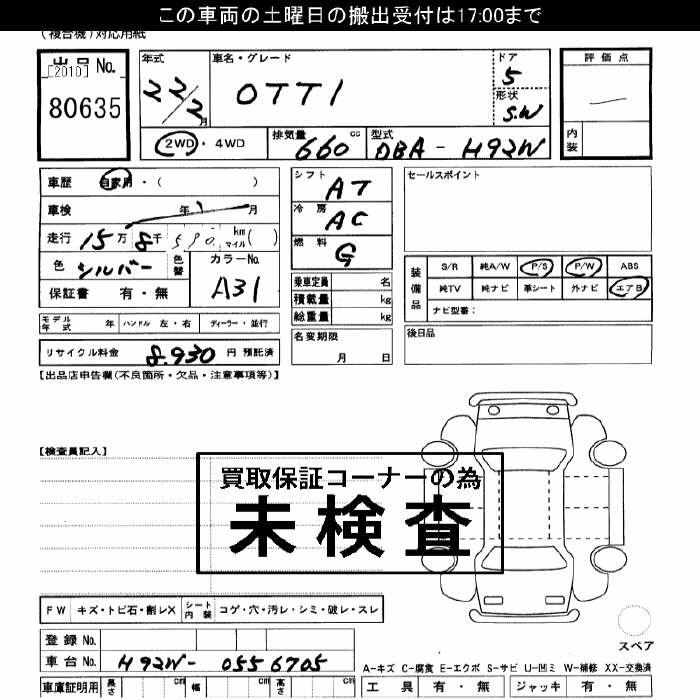 この車両の土曜日の搬出受付は17:00まで
(複合機)対応用紙
出品 No.
[2010]
80635
年式
22/2
月
車名・グレード
OTTI
ドア
5
形状
S.W
評価点
内装
2WD・4WD
排気量
660 cc
型式
DBA - H92W
車歴 自家用・( )
車検 年 月
走行 15万 8千 590 km マイル ( )
色 シルバー 色替
カラーNo. A31
保証書 有・無
シフト AT
冷房 AC
燃料 G
乗車定員 名
積載量 kg
総重量 kg
セールスポイント
装備品
S/R 純A/W P/S P/W ABS
純TV 純ナビ 革シート 外ナビ エアB
ナビ型番:
モデル年式 年 ハンドル 左・右 ディーラー・並行
名変期限
月 日
後日品
リサイクル料金 8,930 円 預託済
【出品店申告欄(不良箇所・欠品・注意事項等)】
【検査員記入】
買取保証コーナーの為
未検査
FW キズ・トビ石・割レX シート内装 コゲ・穴・汚レ・シミ・破レ・スレ
登録 No.
車台 No. H92W- 0556705
スペア
A-キズ C-腐食 E-エクボ S-サビ U-凹ミ W-補修 XX-交換済
車庫証明用 長さ cm 幅 cm 高さ cm
工具 有・無 ジャッキ 有・無